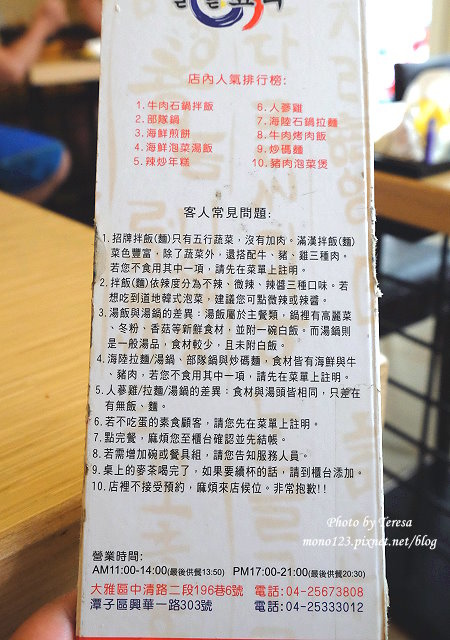 店內人氣排行榜:
1.牛肉石鍋拌飯
2.部隊鍋
3.海鮮煎餅
4.海鮮泡菜湯飯
5.辣炒年糕
6.人蔘雞
7.海陸石鍋拉麵
8.牛肉烤肉飯
9.炒碼麵
10.豬肉泡菜煲
客人常見問題:
1.招牌拌飯(麵)只有五行蔬菜，沒有加肉。滿漢拌飯(麵)
菜色豐富，除了蔬菜外，還搭配牛、豬、雞三種肉。
若您不食用其中一項，請先在菜單上註明。
2.拌飯(麵)依辣度分為不辣、微辣、辣醬三種口味。若
想吃到道地韓式泡菜，建議您可點微辣或辣醬。
3.湯飯與湯鍋的差異：湯飯屬於主餐類，鍋裡有高麗菜
、冬粉、香菇等新鮮食材，並附一碗白飯。而湯鍋則
是一般湯品，食材較少，且未附白飯。
4.海陸拉麵/湯鍋、部隊鍋與炒碼麵，食材皆有海鮮與牛
、豬肉，若您不食用其中一項，請先在菜單上註明。
5.人蔘雞/拉麵/湯鍋的差異：食材與湯頭皆相同，只差在
有無飯、麵。
6.若不吃蛋的素食顧客，請您先在菜單上註明。
7.點完餐，麻煩您至櫃台確認並先結帳。
8.若需增加碗或餐具組，請您告知服務人員。
9.桌上的麥茶喝完了，如果要續杯的話，請到櫃台添加。
10.店裡不接受預約，麻煩來店候位。非常抱歉!!
營業時間:
AM11:00-14:00(最後供餐13:50) PM17:00-21:00(最後供餐20:30)
大雅區中清路二段196巷6號 電話:04-25673808
潭子區興華一路303號 電話:04-25333012
Photo by Teresa
mono123.pixnet.net/blog